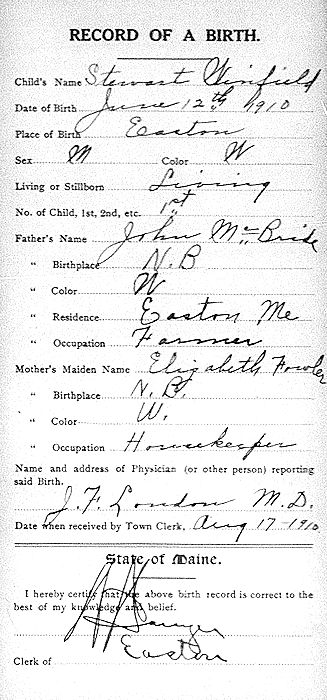 RECORD OF A BIRTH.
Child's Name Stewart Winfield
Date of Birth June 12th 1910
Place of Birth Easton
Sex M Color W
Living or Stillborn Living
No. of Child, 1st, 2nd, etc. 1st
Father's Name John McBride
" Birthplace N.B
" Color W
" Residence Easton Me
" Occupation Farmer
Mother's Maiden Name Elizabeth Fowler
" Birthplace N.B.
" Color W.
" Occupation Housekeeper
Name and address of Physician (or other person) reporting
said Birth.
J. F. London M.D.
Date when received by Town Clerk, Aug 17-1910
State of Maine.
I hereby certify that the above birth record is correct to the
best of my knowledge and belief.
Sawyer
Clerk of Easton